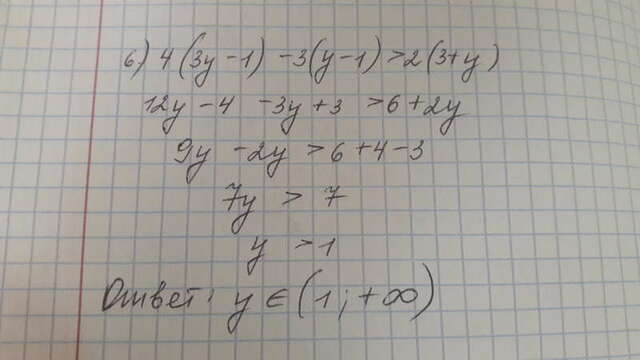 б) 4(3y-1) -3(y-1)>2(3+y)
12y-4 -3y+3 >6+2y
9y -2y>6+4-3
7y > 7
y >1
Ответ: y∈(1;+∞)